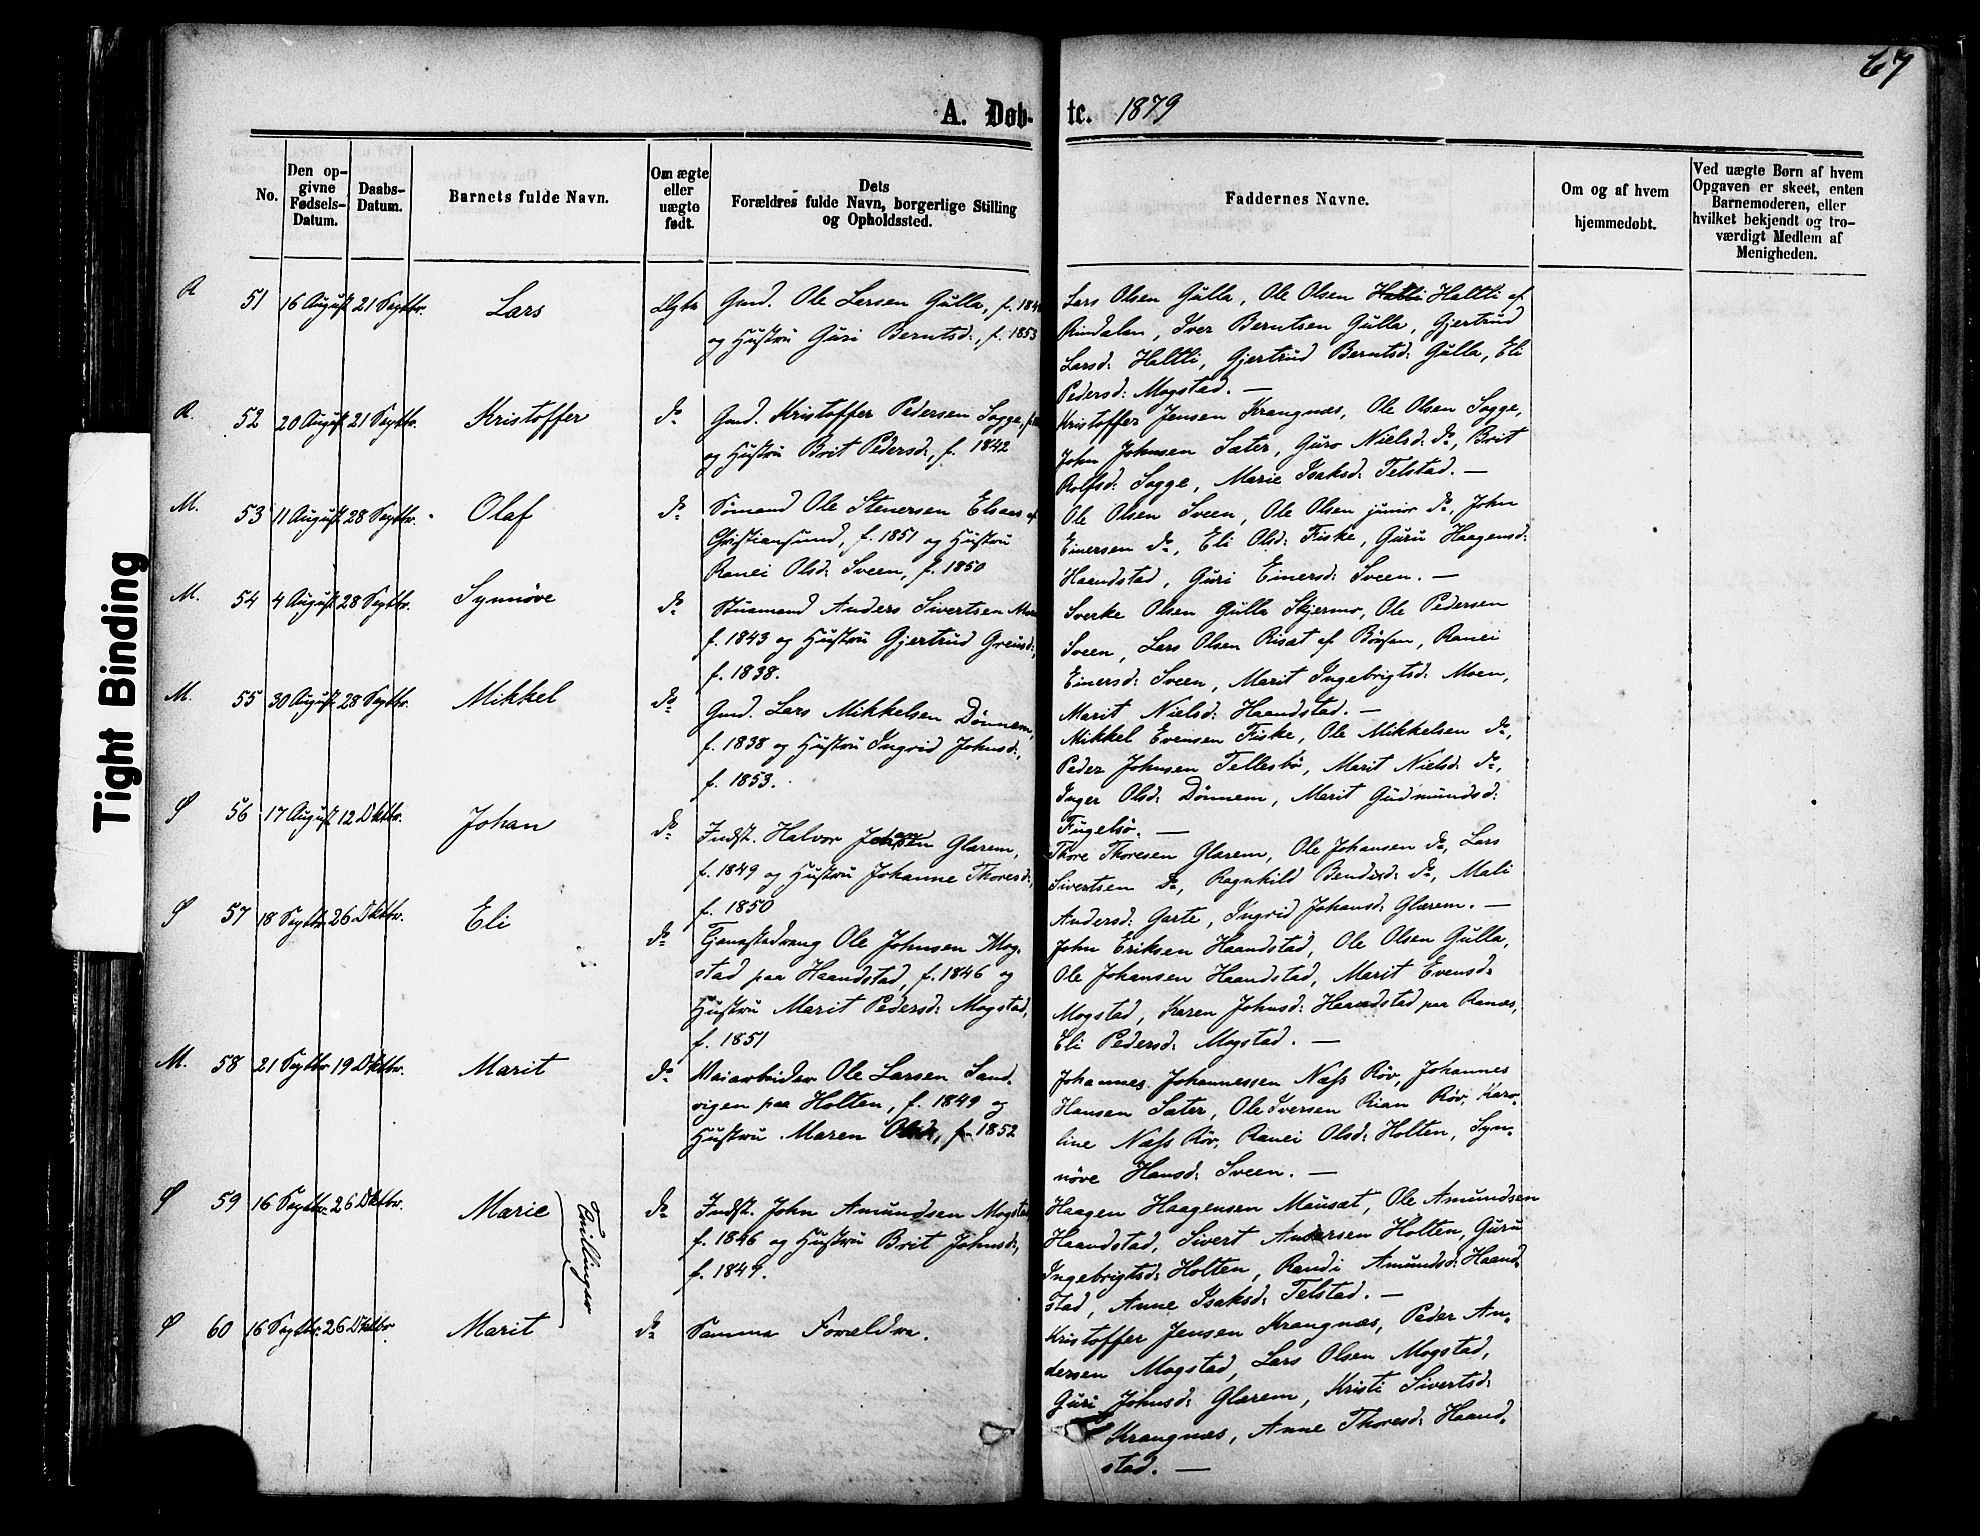 67
A. Døb- te. 1879
No.
Den op-
givne
Fødsels-
Datum.
Daabs-
Datum.
Barnets fulde Navn.
Om ægte
eller
uægte
født.
Dets
Forældres fulde Navn, borgerlige Stilling
og Opholdssted.
Faddernes Navne.
Om og af hvem
hjemmedøbt.
Ved uægte Børn af hvem
Opgaven er skeet, enten
Barnemoderen, eller
hvilket bekjendt og tro-
værdigt Medlem af
Menigheden.
R 51 16 August 21 Septbr. Lars Ægte
Gmd. Ole Larsen Gulla, f. 184
og Hustru Guri Berntsd:, f. 1853
Lars Olsen Gulla, Ole Olsen Haltli af
Rindalen, Iver Berntsen Gulla, Gjertrud
Larsd: Haltli, Gjertrud Berntsd: Gulla, Eli
Pedersd: Mogstad. —
R. 52 20 August 21 Septbr. Kristoffer do
Gmd. Kristoffer Pedersen Sogge, f.
og Hustru Brit Pedersd:, f. 1842
Kristoffer Jensen Krangnæs, Ole Olsen Sogge,
John Johnsen Sæter, Guro Nielsd: do, Brit
Rolfsd: Sogge, Marie Isaksd: Telstad. —
M. 53 11 August 28 Septbr. Olaf do
Sømand Ole Stenersen Elsaas af
Christiansund, f. 1851 og Hustru
Ranei Olsd: Sveen, f. 1850
Ole Olsen Sveen, Ole Olsen junior do, John
Einersen do, Eli Olsd: Fiske, Guru Haagensd:
Haandstad, Guri Einersd: Sveen. —
M. 54 4 August 28 Septbr. Synnøve do
Husmand Anders Sivertsen Moen
f. 1843 og Hustru Gjertrud Greiusd:,
f. 1838.
Sverke Olsen Gulla Skjermo, Ole Pedersen
Sveen, Lars Olsen Risat af Børsen, Ranei
Einersd: Sveen, Marit Ingebrigtsd: Moen,
Marit Nielsd: Haandstad. —
M. 55 30 August 28 Septbr. Mikkel do
Gmd. Lars Mikkelsen Dønnem,
f. 1838 og Hustru Ingrid Johnsd:,
f. 1853.
Mikkel Evensen Fiske, Ole Mikkelsen do,
Peder Johnsen Tellesbø, Marit Nielsd: do,
Inger Olsd: Dønnem, Marit Gudmundsd:
Fugelsø. —
Ø 56 17 August 12 Oktbr. Johan do
Indst. Halvor Johansen Glærem,
f. 1849 og Hustru Johanne Thoresd:,
f. 1850
Thore Thoresen Glærem, Ole Johansen do, Lars
Sivertsen do, Ragnhild Bendixd: do, Mali
Andersd: Garte, Ingrid Johansd: Glærem. —
Ø 57 18 Septbr. 26 Oktbr. Eli do
Tjenestedreng Ole Johnsen Mog-
stad paa Haandstad, f. 1846 og
Hustru Marit Pedersd: Mogstad,
f. 1851
John Eriksen Haandstad, Ole Olsen Gulla,
Ole Johansen Haandstad, Marit Evensd:
Mogstad, Karen Johnsd: Haandstad paa Ranæs,
Eli Pedersd: Mogstad. —
M. 58 21 Septbr 19 Oktbr. Marit do
Veiarbeider Ole Larsen Sand-
vigen paa Holten, f. 1849 og
Hustru Maren Olsd:, f. 1852
Johannes Johannessen Næss Røv, Johannes
Hansen Sæter, Ole Iversen Rian Røv, Karo-
line Næss Røv, Ranei Olsd: Holten, Syn-
nøve Hansd: Sveen. —
Ø 59 16 Septbr. 26 Oktbr. Marie do
Tvillinger
Indst. John Amundsen Mogstad
f. 1846 og Hustru Brit Johnsd:,
f. 1849.
Haagen Haagensen Mausat, Ole Amundsen
Haandstad, Sivert Andersen Holten, Guru
Ingebrigtsd: Holten, Randi Amundsd: Haand-
stad, Anne Isaksd: Telstad. —
Ø 60 16 Septbr. 26 Oktbr Marit do
Samme Forældre.
Kristoffer Jensen Krangnæs, Peder An-
dersen Mogstad, Lars Olsen Mogstad,
Guri Johnsd: Glærem, Kristi Sivertsd:
Krangnæs, Anne Thoresd: Haand-
stad. —
Tight Binding